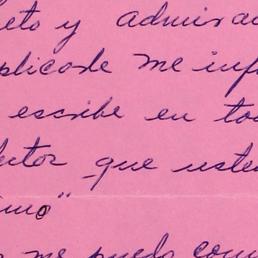 eto y admira
plicarle me inf
escribe en to
que uste
imo"
me puedo com